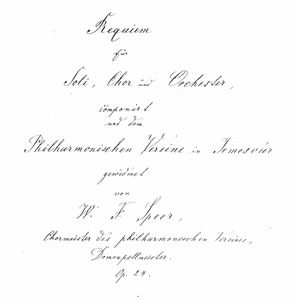 Requiem
für
Soli, Chor und Orchester,
componirt
und dem
Philharmonischen Vereine in Temesvár
gewidmet
von
W. F. Speer,
Chormeister des philharmonischen Vereines,
Domcapellmeister.
Op. 24.